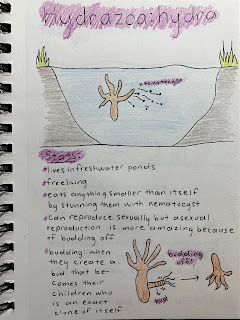 Hydrazoa:hydra
nematocyst
Stats:
*lives in freshwater ponds
*freeliving
*eats anything smaller than itself
by stunning them with nematocyst
*Can reproduce sexually but asexual
reproduction is more amazing because
of budding off
*budding: when
they create a
bud that be-
comes their
children who
is an exact
clone of itself
budding
off!!
bud